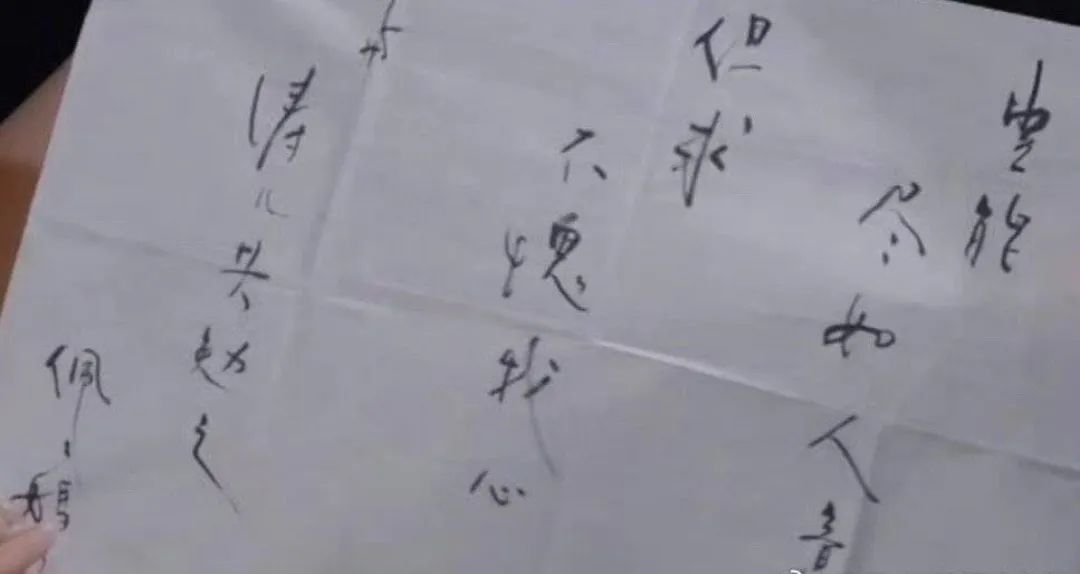 岂能
尽如人意
但求
不愧我心
与
涛儿共勉之
佩娟